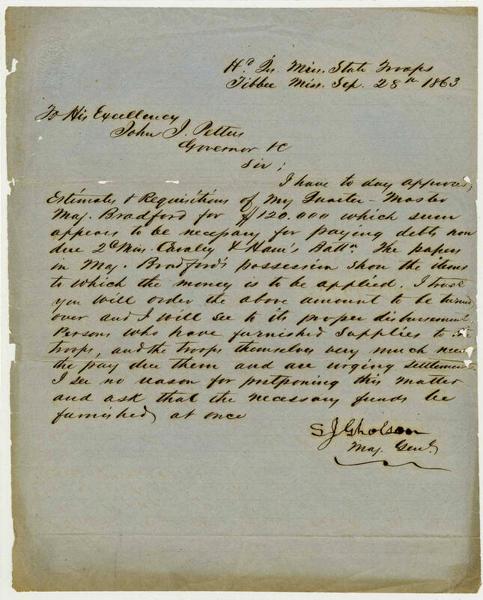 Hd Qrs Miss. State Troops
Tibbee Miss. Sep. 28th 1863
To His Excellency
John J. Pettus
Governor &c
Sir;
I have to day approved
Estimates & Requisitions of my Quarter-Master
Maj. Bradford for $120.000 which sum
appears to be necessary for paying debts now
due 2d Miss. Cavalry & Ham's Battn. The papers
in Maj. Bradford's possession show the items
to which the money is to be applied. I trust
you will order the above amount to be turned
over and I will see to its proper disbursement
Persons who have furnished supplies to
troops, and the troops themselves very much need
the pay due them and are urging settlement
I see no reason for postponing this matter
and ask that the necessary funds be
furnished at once
S J Gholson
Maj. Genl.